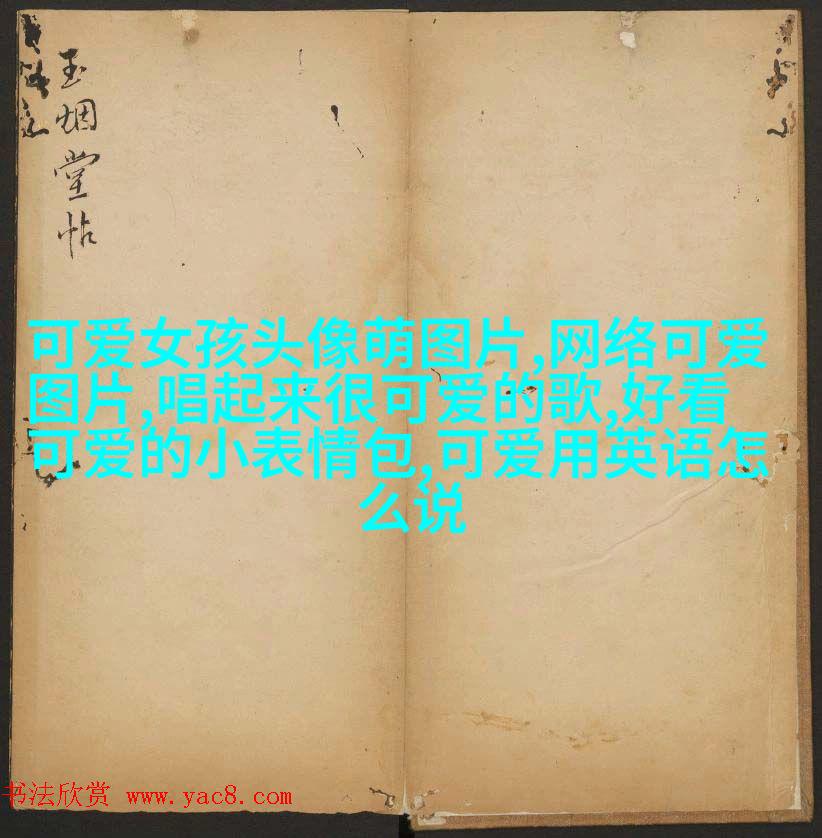 玉烟堂帖
可爱女孩头像萌图片,网络可爱
图片,唱起来很可爱的歌,好看
可爱的小表情包,可爱用英语怎
么说
书法欣赏 www.yac8.com